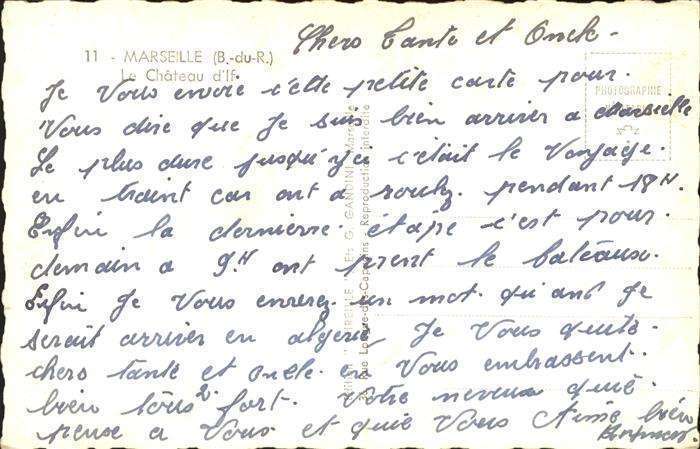 Chers Tante et Oncle.
11 - MARSEILLE (B.-du-R.)
Le Château d'If.
PHOTOGRAPHIE
Je Vous envoie cette petite carte pour.
Vous dire que Je suis bien arriver a Marseille
Le plus dure jusqu'ici c'était le Voyage.
en traint car ont a roulez. pendant 18H.
Enfin la dernierre étape c'est pour.
demain a 9H ont prent le bateaux.
Enfin Je Vous enverez un mot. quant Je
serait arriver en algerie, Je Vous quite.
chers tante et oncle. en Vous embrassent.
bien tous 2 fort. Votre neveux qui
pense a Vous et qui Vous Aime bien
GANDINI Marseille
Reproduction Interdite